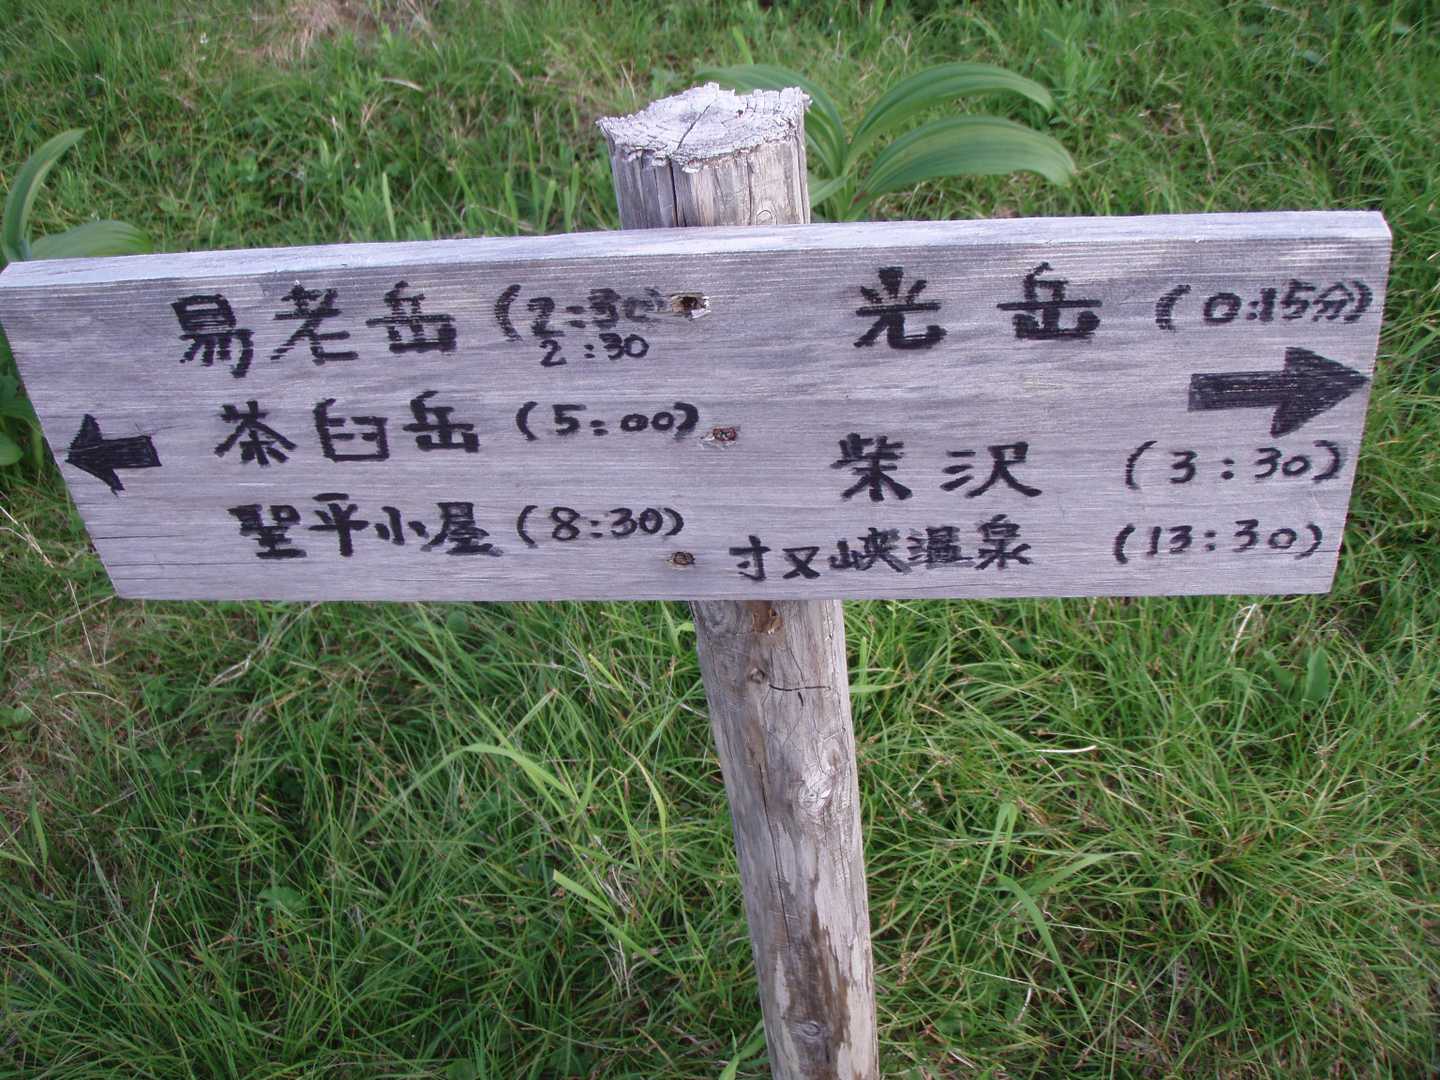 易老岳 (2:30)
2:30
茶臼岳 (5:00)
聖平小屋 (8:30)
光岳 (0:15分)
柴沢 (3:30)
寸又峡温泉 (13:30)